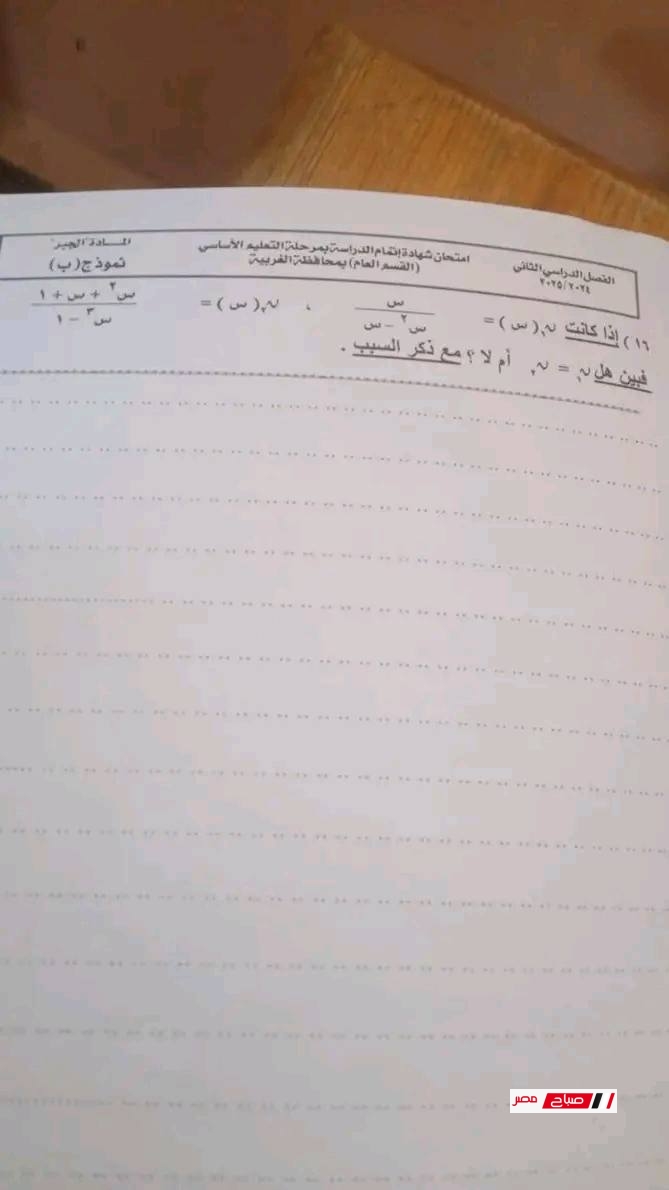 الفصل الدراسي الثاني
٢٠٢٥/٢٠٢٤
امتحان شهادة إتمام الدراسة بمرحلة التعليم الأساسي
(القسم العام) بمحافظة الغربية
المادة: الجبر
نموذج (ب)
١٦) إذا كانت ن₁(س) = س / (س² – س) ، ن₂(س) = (س² + س + ١) / (س³ – ١)
فبين هل ن₁ = ن₂ أم لا ؟ مع ذكر السبب .
صباح مصر